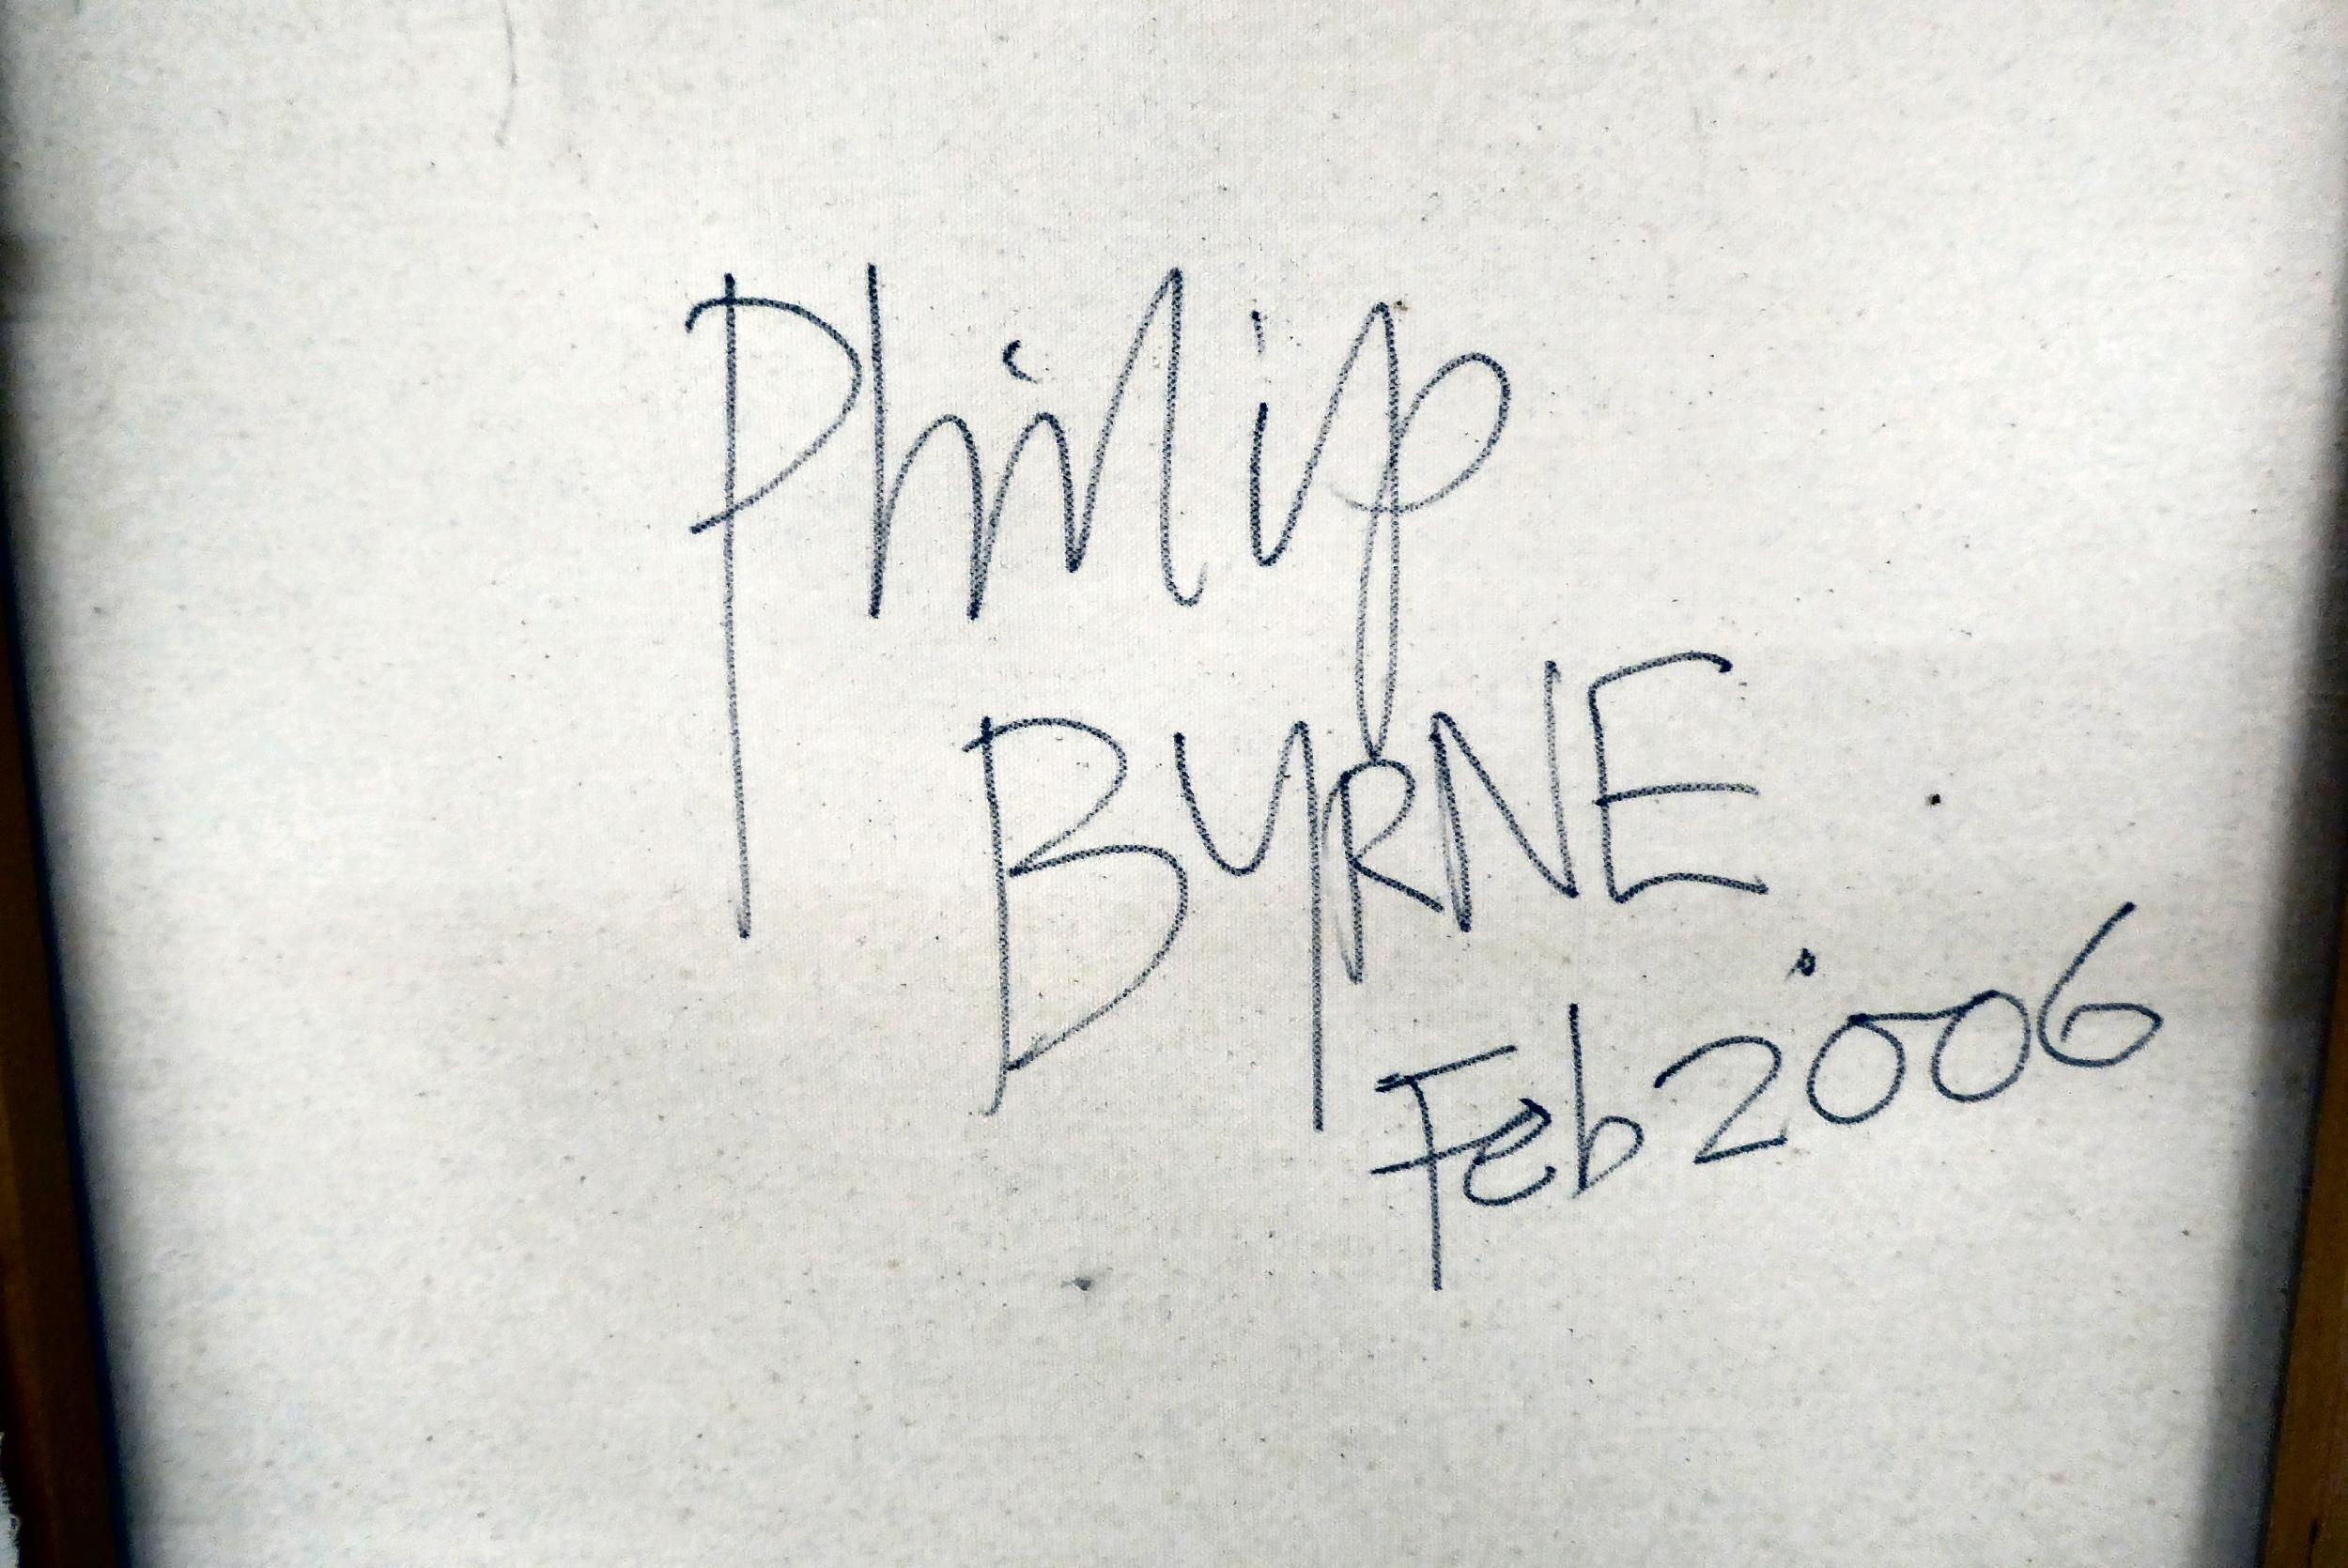 Philip
BYRNE
Feb 2006